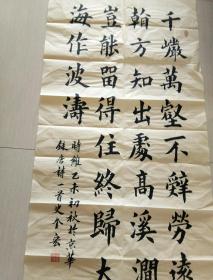 千巖萬壑不辭勞遠
看方知出處高溪澗
豈能留得住終歸大
海作波濤
時維乙未初秋於京華
錄唐詩一首史全